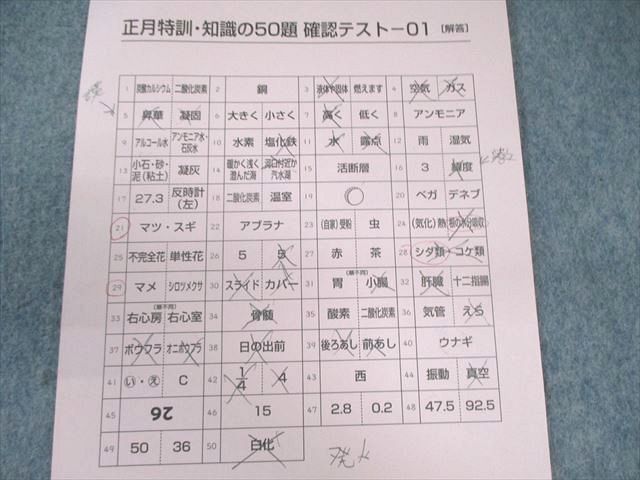 正月特訓・知識の50題 確認テスト－01 [解答]
1 炭酸カルシウム 二酸化炭素 2 銅 3 液体や固体 燃えます 4 空気 ガス
5 昇華 凝固 6 大きく 小さく 7 高く 低く 8 アンモニア
9 アルコール水 アンモニア水・石灰水 10 水素 塩化鉄 11 水 露点 12 雨 湿気
13 小石・砂・泥(粘土) 凝灰 14 暖かく浅く澄んだ海 河口付近か汽水湖 15 活断層 16 3 頻度
17 27.3 反時計(左) 18 二酸化炭素 温室 19 20 ベガ デネブ
21 マツ・スギ 22 アブラナ 23 (自家)受粉 虫 24 (気化)熱 根の水分吸収
25 不完全花 単性花 26 5 5 27 赤 茶 28 シダ類・コケ類
29 マメ シロツメクサ 30 スライド カバー 31 (順不同) 胃 小腸 32 肝臓 十二指腸
33 (順不同) 右心房 右心室 34 骨髄 35 酸素 二酸化炭素 36 気管 えら
37 ボウフラ オニボウフラ 38 日の出前 39 後ろあし 前あし 40 ウナギ
41 い・え C 42 1/4 4 43 西 44 振動 真空
45 26 46 15 47 2.8 0.2 48 47.5 92.5
49 50 36 50 白化